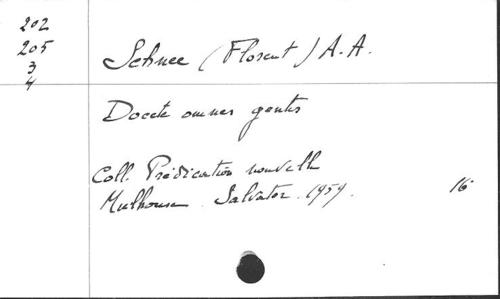 202
205
3
4
Schnee (Florent) A.A.
Docete omnes gentes
Coll. Prédication nouvelle
Mulhouse. Salvator. 1959. 16°